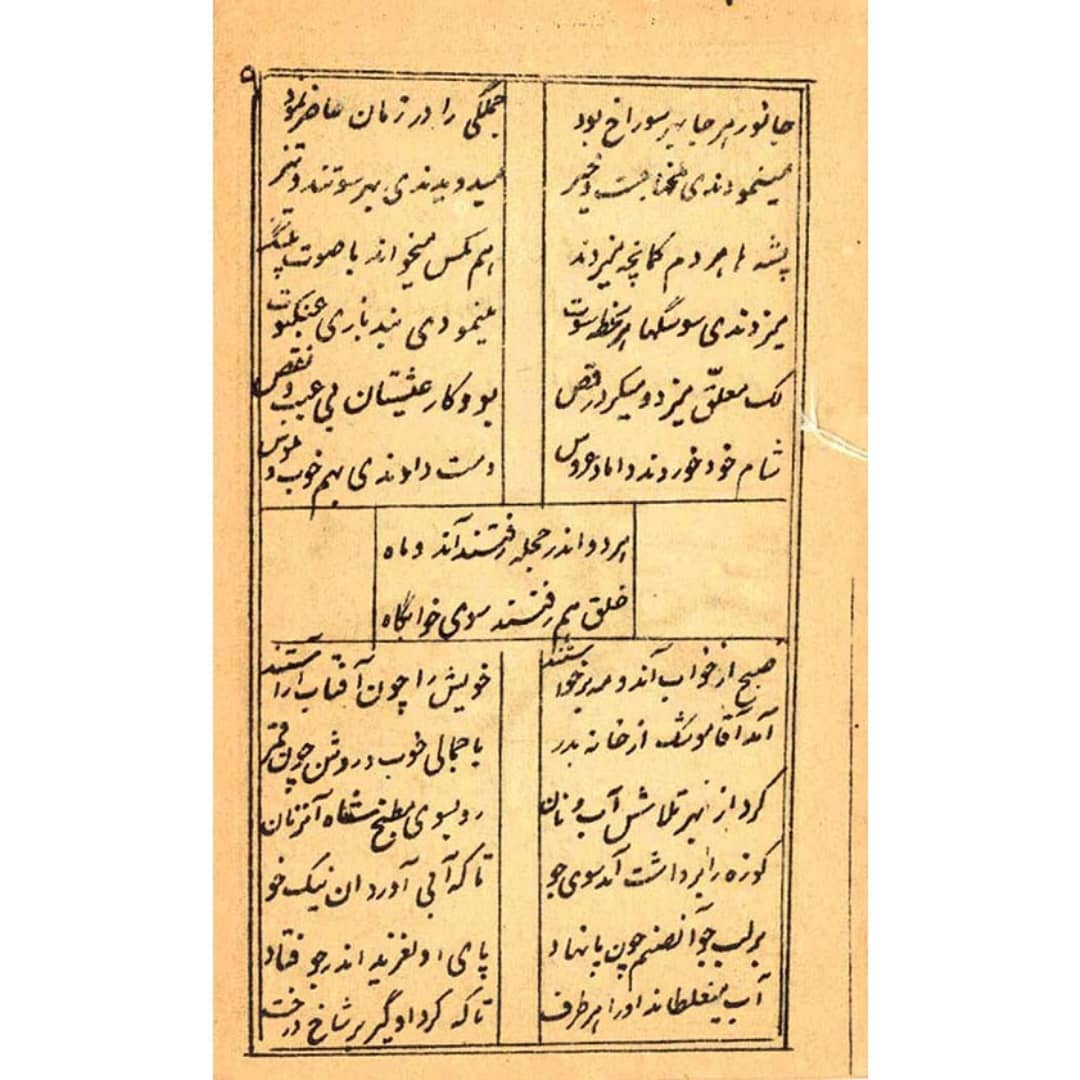 ۹
جانور هر جا بهر سوراخ بود
جملگی را در زمان حاضر نمود
مینمودندی همه جست و خیز
میدویدندی بهر سو تند و تیز
پشه ها هر دم کمانچه میزدند
هم مگس میخواند با صوت بلند
میزدندی سوسکها هر سوت
مینمودی بندبازی عنکبوت
لک معلق میزد و میکرد رقص
بود کار عیششان بی عیب و نقص
شام خود خوردند داماد و عروس
دست دادندی بهم خوب و ملوس
هر دو اندر حجله رفتند آند و ماه
خلق هم رفتند سوی خوابگاه
صبح از خواب آندو مه برخواستند
خویش را چون آفتاب آراستند
آمد آقا موشک از خانه بدر
با جمالی خوب و روشن چون قمر
کرد از بهر تلاش آب و نان
رو بسوی مطبخ شاه آنزمان
کوزه را برداشت آمد سوی جو
تا که آبی آورد ان نیک خو
بر لب جو آنصنم چون پا نهاد
پای او لغزید اندر جو فتاد
آب میغلطاند او را هر طرف
تا که کرد او گیر بر شاخ درخت